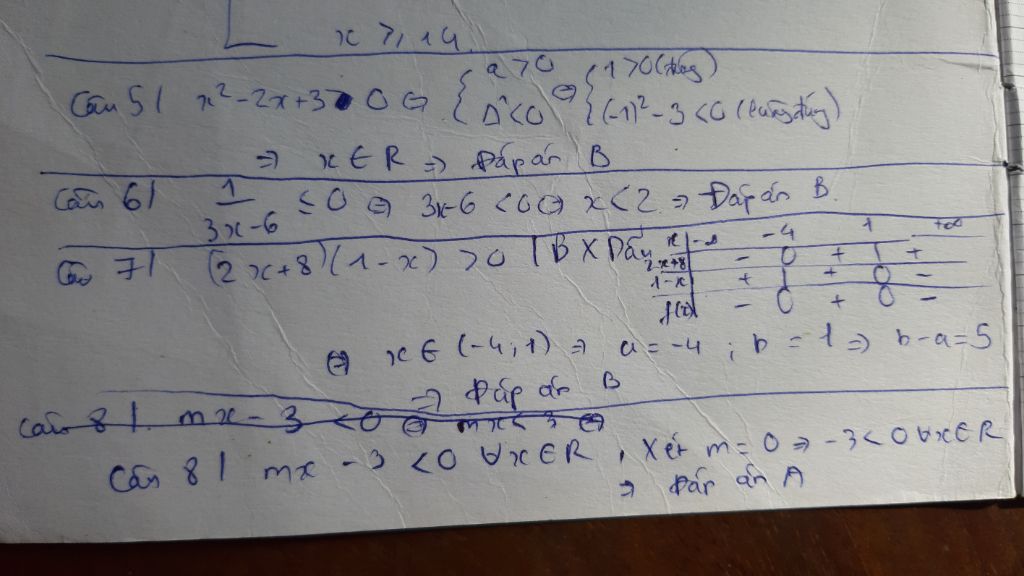 x ≥ 14
Câu 5| x² - 2x + 3 > 0 ⇔ { a > 0 ⇔ { 1 > 0 (đúng)
{ Δ' < 0 { (-1)² - 3 < 0 (luôn đúng)
⇒ x ∈ R ⇒ Đáp án B
Câu 6| 1/(3x-6) ≤ 0 ⇔ 3x-6 < 0 ⇔ x < 2 ⇒ Đáp án B.
Câu 7| (2x+8)(1-x) > 0 | B X Dấu
x | -∞ -4 1 +∞
2x+8 | - 0 + | +
1-x | + | + 0 -
f(x) | - 0 + 0 -
⇔ x ∈ (-4;1) ⇒ a = -4 ; b = 1 ⇒ b-a = 5
⇒ Đáp án B
Câu 8| mx - 3 < 0 ⇔ mx < 3 ⇔
Câu 8| mx - 3 < 0 ∀x∈R , Xét m = 0 ⇒ -3 < 0 ∀x∈R
⇒ Đáp án A